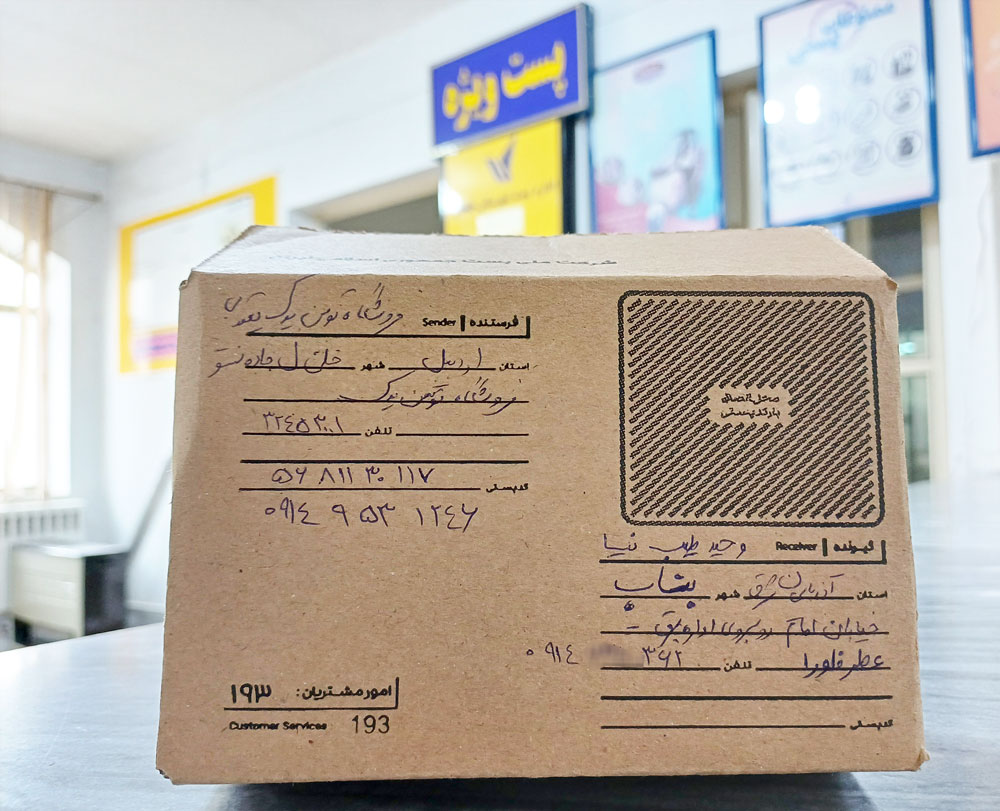 پست ویژه
فرستنده Sender فروشگاه توسن یدک یعقوبی
استان اردبیل شهر خلخال جاده
فروشگاه توسن یدک
تلفن ۳۲۴۵۳۰۰۱
کدپستی ۵۶۸۱۱۳۰۱۱۷
۰۹۱۴ ۹۵۳ ۱۲۴۶
محل الصاق
بارکد پستی
گیرنده Receiver وحید طیب نیا
استان آذربایجان شرقی شهر
خیابان امام روبروی اداره برق -
عطر فلورا تلفن ۳۶۲ ۰۹۱۴
کدپستی
امور مشتریان: ۱۹۳
Customer Services 193